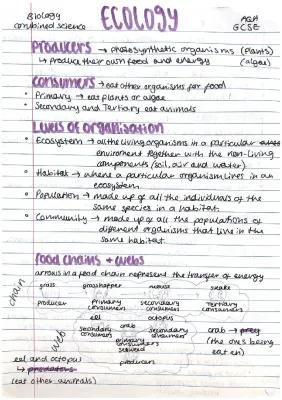 Biology
combined science
ECOLOGY
AQA
GCSE
Producers → photosynthetic organisms (plants)
↳ produce their own food and energy (algae)
Consumers → eat other organisms for food
• Primary → eat plants or algae
• Secondary and Tertiary eat animals
Levels of Organisation
• Ecosystem → all the living organisms in a particular
enviroment together with the non-living
components (soil, air and water)
• Habitat → where a particular organism lives in an
ecosystem
• Population → made up of all the individuals of the
same species in a habitat
• Community → made up of all the populations of
different organisms that live in the
same habitat.
Food chains + webs
arrows in a food chain represent the transfer of energy
chain
grass grasshopper mouse snake
producer primary consumers secondary consumers Tertiary consumers
web
eel octopus
secondary consumers crab secondary consumers
primary consumers
seaweed
producers
crab → prey
(the ones being
eaten)
eel and octopus
↳ predators
(eat other animals)